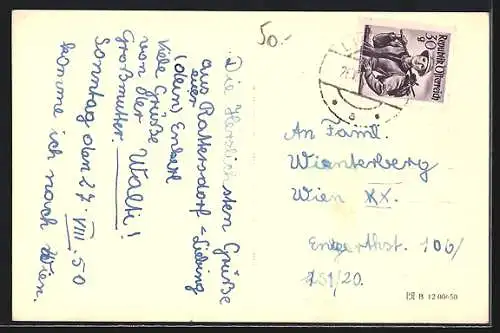 50.-
Die Herzlichsten Grüße
aus Rattersdorf-Liebing
euer
(dein) Enkerl
Viele Grüße
von der
Großmutter. Walti!
Sonntag den 27. VIII. 50
komme ich nach Wien.
Republik Österreich
30
g
An Faml.
Winterberg
Wien XX.
Engerthst. 106/
151/20.
B 12 00650